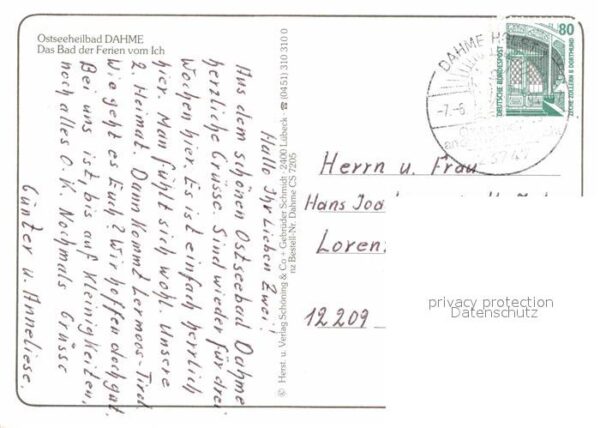 Ostseeheilbad DAHME
Das Bad der Ferien vom Ich
Hallo Ihr Lieben Zwei!
Aus dem schönen Ostseebad Dahme
herzliche Grüsse. Sind wieder für drei
Wochen hier. Es ist einfach herrlich
hier. Man fühlt sich wohl. Unsere
2. Heimat. Dann kommt Lermoos-Tirol.
Wie geht es Euch? Wir hoffen doch gut.
Bei uns ist, bis auf Kleinigkeiten,
noch alles O.K. Nochmals Grüsse
Günter u. Anneliese.
© Herst. u. Verlag Schöning & Co + Gebrüder Schmidt · 2400 Lübeck · ☎ (0451) 310 310 0
nz Bestell-Nr. Dahme CS 7205
DAHME HOLST
-7.-6
80
DEUTSCHE BUNDESPOST
ZECHE ZOLLERN II DORTMUND
Herrn u. Frau
Hans Joa
Loren
12209
privacy protection
Datenschutz